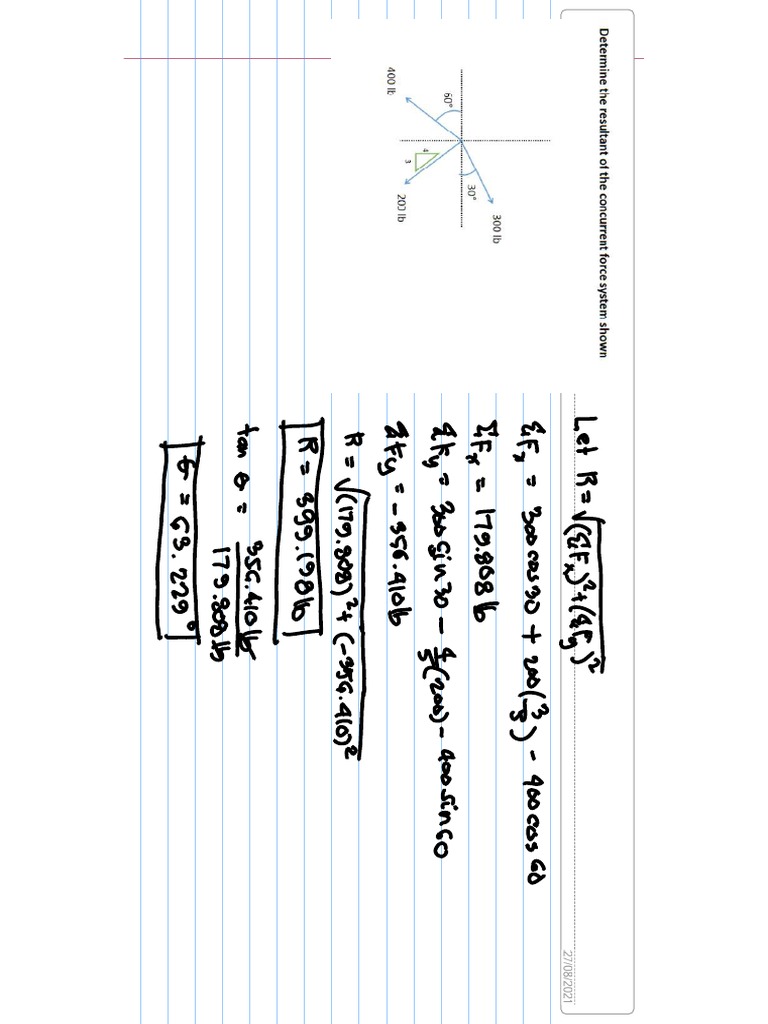 Determine the resultant of the concurrent force system shown
300 lb
30°
60°
4
3
400 lb
200 lb
Let R = √(ΣFx)² + (ΣFy)²
ΣFx = 300 cos 30 + 200(3/5) - 400 cos 60
ΣFx = 179.808 lb
ΣFy = 300 sin 30 - 4/5(200) - 400 sin 60
ΣFy = -356.410 lb
R = √(179.808)² + (-356.410)²
R = 399.198 lb
tan θ = 356.410 lb / 179.808 lb
θ = 63.229°
27/08/2021